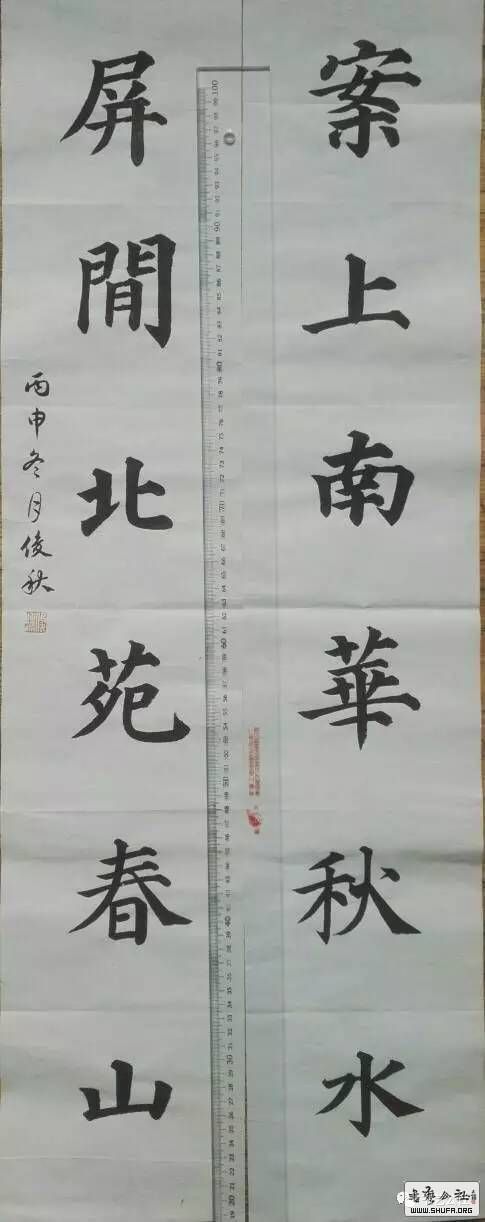 案上南華秋水
屏間北苑春山
丙申冬月俊秋
WWW.SHUFA.ORG